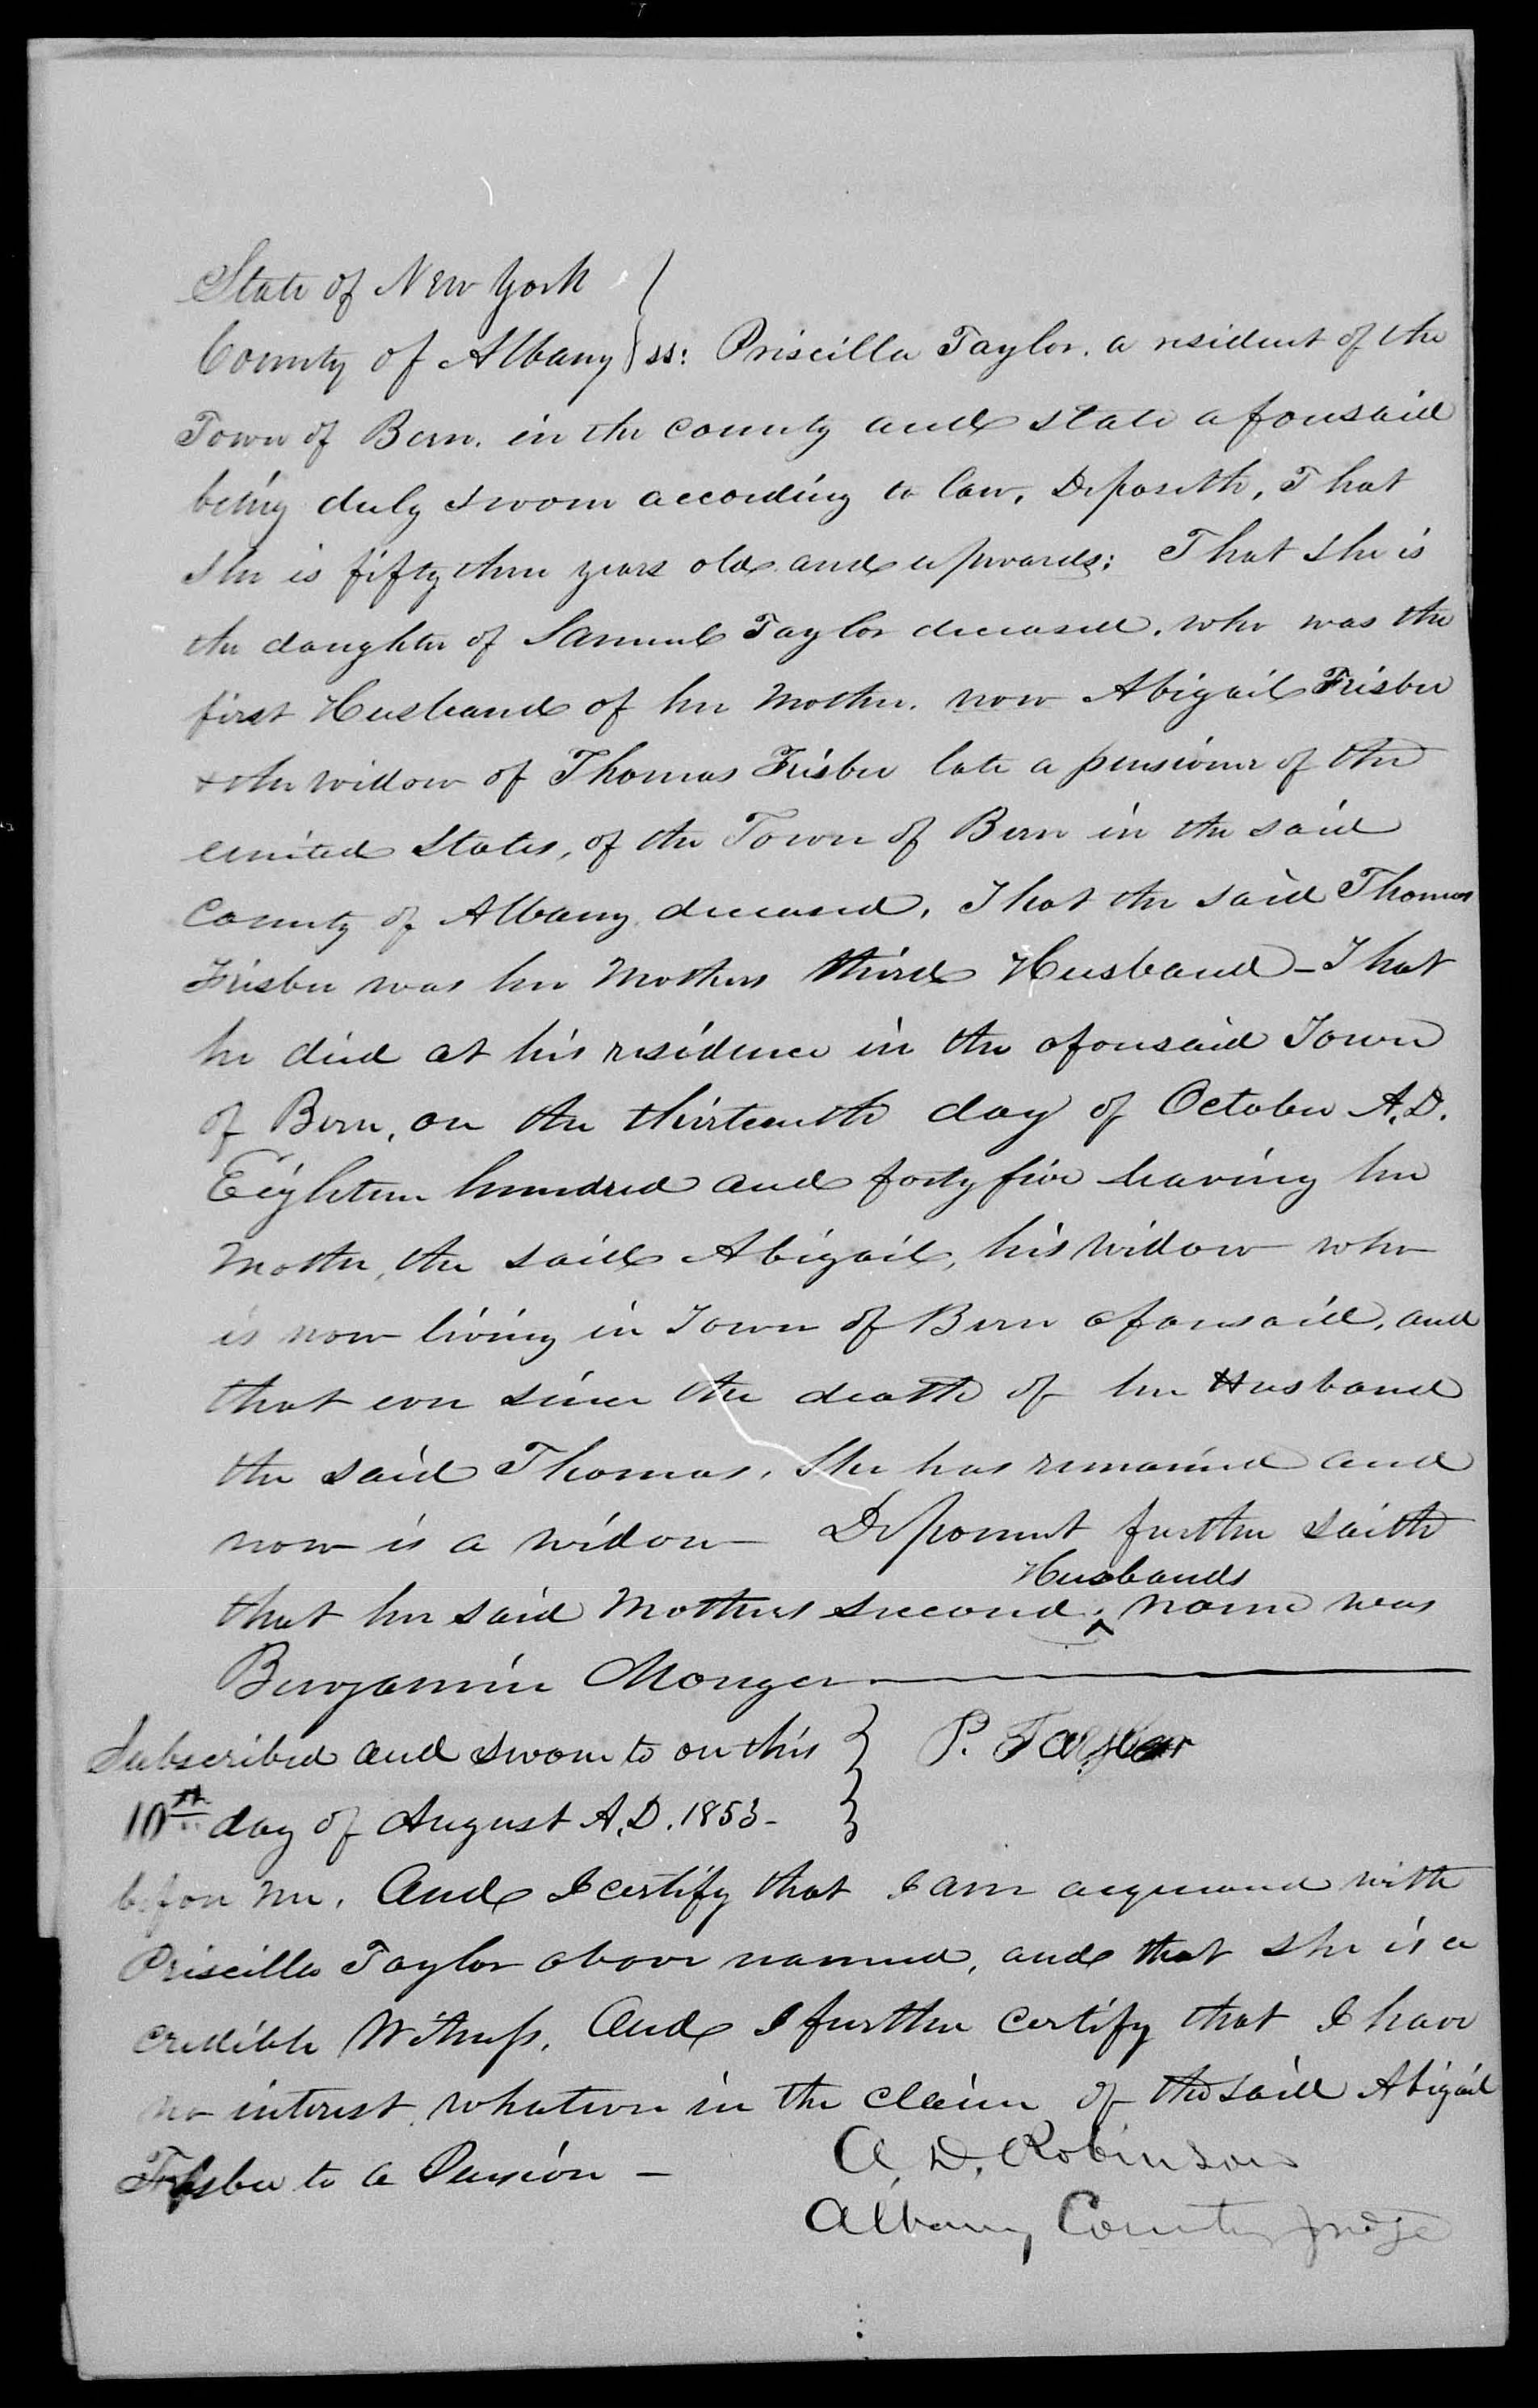 State of New York
County of Albany } ss: Priscilla Taylor, a resident of the
Town of Bern, in the county and state aforesaid
being duly sworn according to law, Deposeth, That
she is fifty three years old and upwards; That she is
the daughter of Samuel Taylor deceased, who was the
first Husband of her Mother, now Abigail Frisbee
& the widow of Thomas Frisbee late a pensioner of the
United States, of the Town of Bern in the said
County of Albany, deceased, That the said Thomas
Frisbee was her Mothers third Husband - That
he died at his residence in the aforesaid Town
of Bern, on the thirteenth day of October A.D.
Eighteen hundred and forty five leaving her
Mother, the said Abigail, his widow who
is now living in Town of Bern aforesaid, and
that ever since the death of her Husband
the said Thomas, She has remained and
now is a widow - Deponent further saith
that her said Mothers second ^ Husbands name was
Benjamin Monger
Subscribed and sworn to on this } P. Taylor
10th day of August A.D. 1853 -
before me, And I certify that I am acquaned with
Priscilla Taylor above named, and that she is a
credible Witness, And I further certify that I have
no interest whatever in the claim of the said Abigail
Frisbee to a Pension -
A. D. Robinson
Albany County Judge